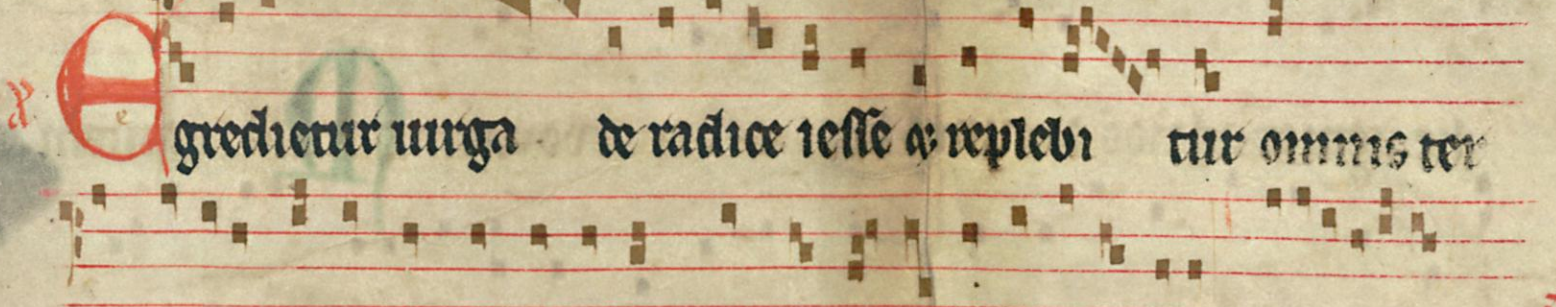 Egredietur uirga de radice iesse & replebitur omnis ter